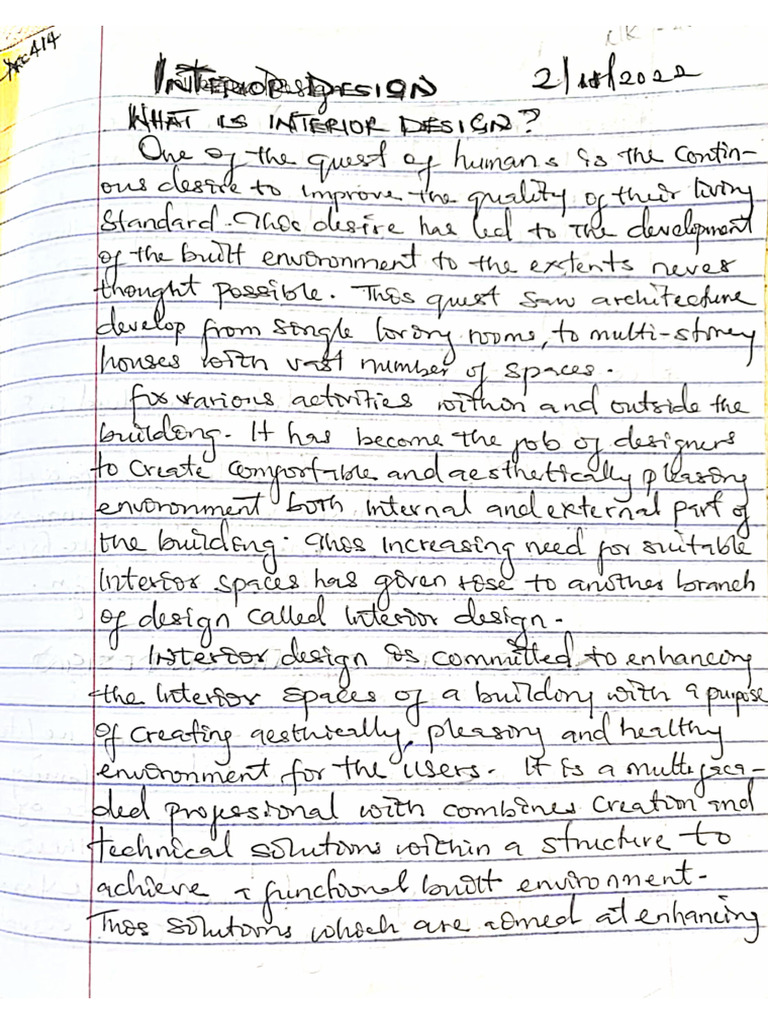 Arc 414
INTERIOR DESIGN 2/11/2022
WHAT IS INTERIOR DESIGN?
One of the quest of humans is the contin-
ous desire to improve the quality of their living
Standard. This desire has led to the development
of the built environment to the extents never
thought possible. This quest saw architecture
develop from single living rooms, to multi-storey
houses with vast number of spaces.
for various activities within and outside the
building. It has become the job of designers
to create comfortable and aesthetically pleasing
environment both internal and external part of
the building. This increasing need for suitable
interior spaces has given rose to another branch
of design called interior design.
Interior design is committed to enhancing
the interior spaces of a building with a purpose
of creating aesthically, pleasing and healthy
environment for the users. It is a multifaca-
ded professional with combines creation and
technical solutions within a structure to
achieve a functional built environment.
This solutions which are aimed at enhancing